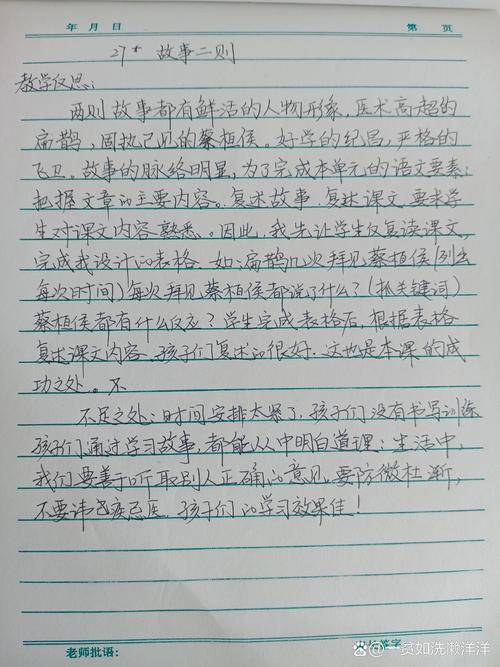 年 月 日 第 页
27* 故事二则
教学反思：
两则故事都有鲜活的人物形象，医术高超的
扁鹊，固执己见的蔡桓侯。好学的纪昌，严格的
飞卫。故事的脉络明显，为了完成本单元的语文要素：
把握文章的主要内容。复述故事，复述课文，要求学
生对课文内容熟悉。因此，我先让学生反复读课文，
完成我设计的表格。如：扁鹊几次拜见蔡桓侯（列出
每次时间）每次拜见蔡桓侯都说了什么？（抓关键词）
蔡桓侯都有什么反应？学生完成表格后，根据表格
复述课文内容，孩子们复述的很好，这也是本课的成
功之处。不
不足之处：时间安排太紧了，孩子们没有书写训练
孩子们通过学习故事，都能从中明白道理：生活中，
我们要善于听取别人正确的意见。要防微杜渐，
不要讳疾忌医，孩子们的学习效果佳！
老师批语： 签字
一贫如洗懒洋洋